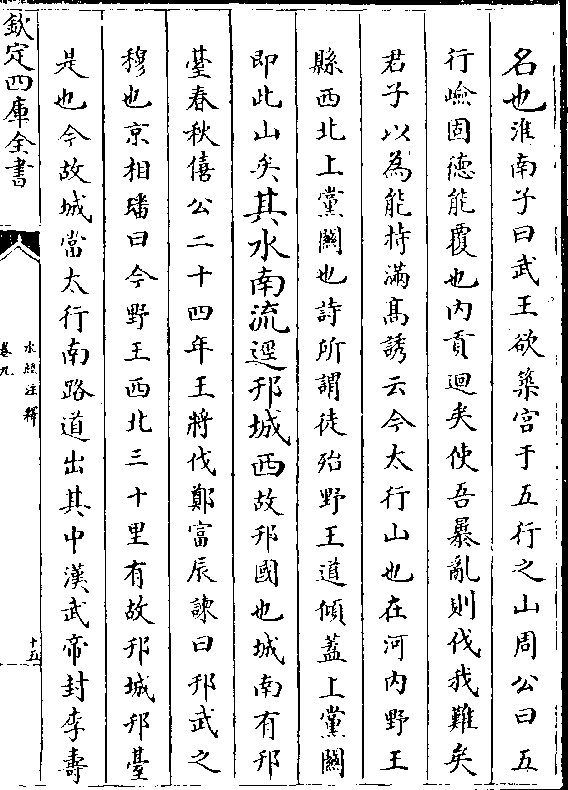 名也淮南子曰武王欲築宫于五行之山周公曰五
行嶮固德能覆也内貢迴矣使吾暴亂則伐我難矣
君子以為能持滿髙誘云今太行山也在河内野王
縣西北上黨闗也詩所謂徒殆野王道傾蓋上黨闗
即此山矣其水南流逕邘城西故邘國也城南有邘
臺春秋僖公二十四年王將伐鄭富辰諫曰邘武之
穆也京相璠曰今野王西北三十里有故邘城邘臺
是也今故城當太行南路道出其中漢武帝封李壽
欽定四庫全書
水經注釋
卷九
十五